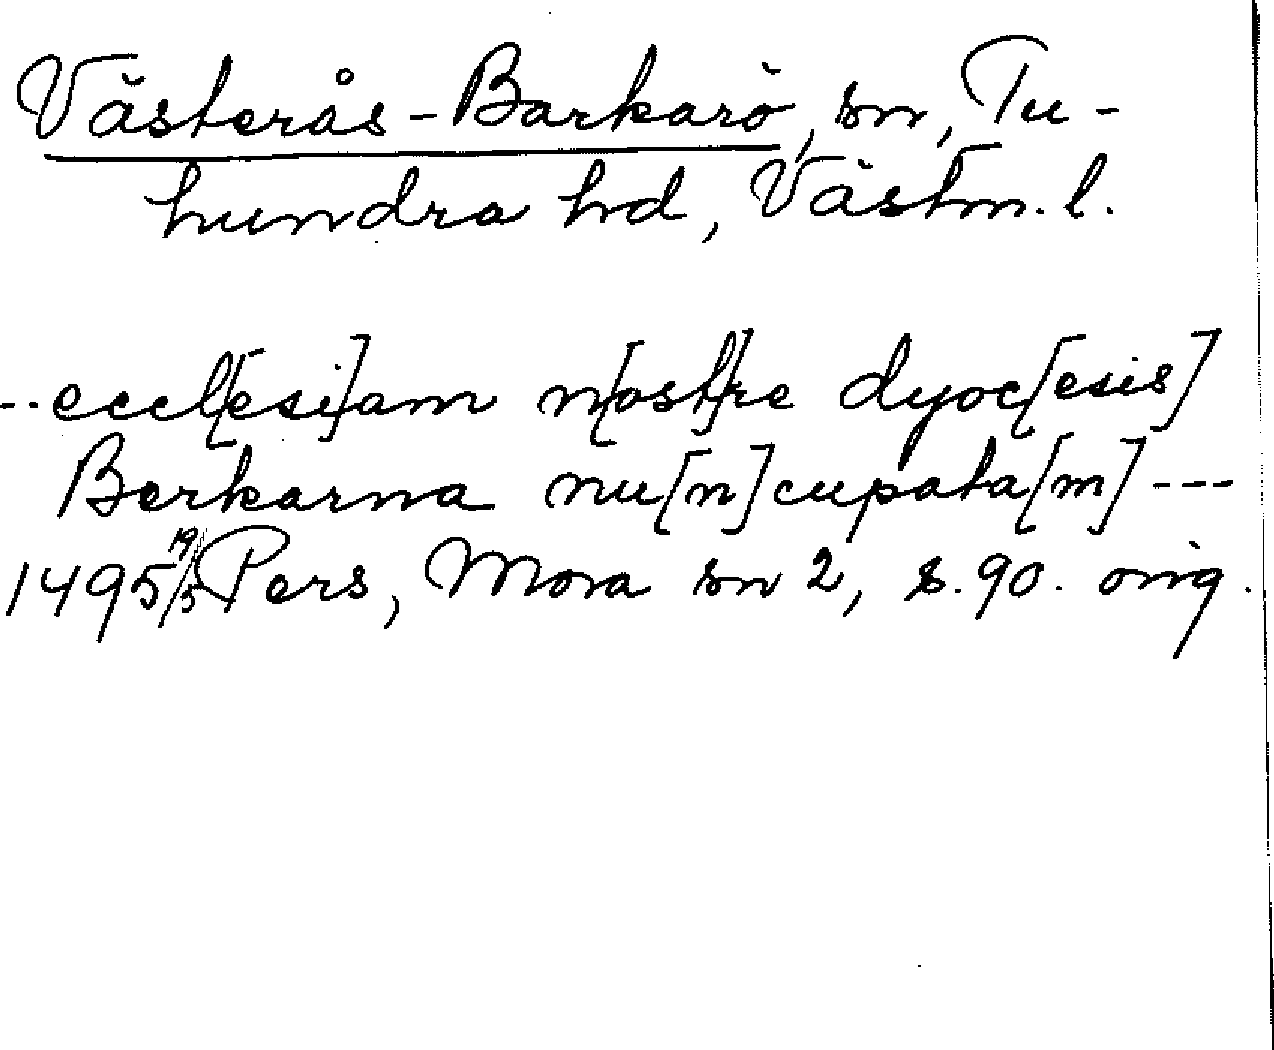 Västerås-Barkarö, sn, Tu-
hundra hd, Västm. l.
--eccl[esi]am n[ost]re dyoc[esis]
Berkarna nu[n]cupata[m] ---
1495 19/5 Pers, Mora sn 2, s. 90. orig.